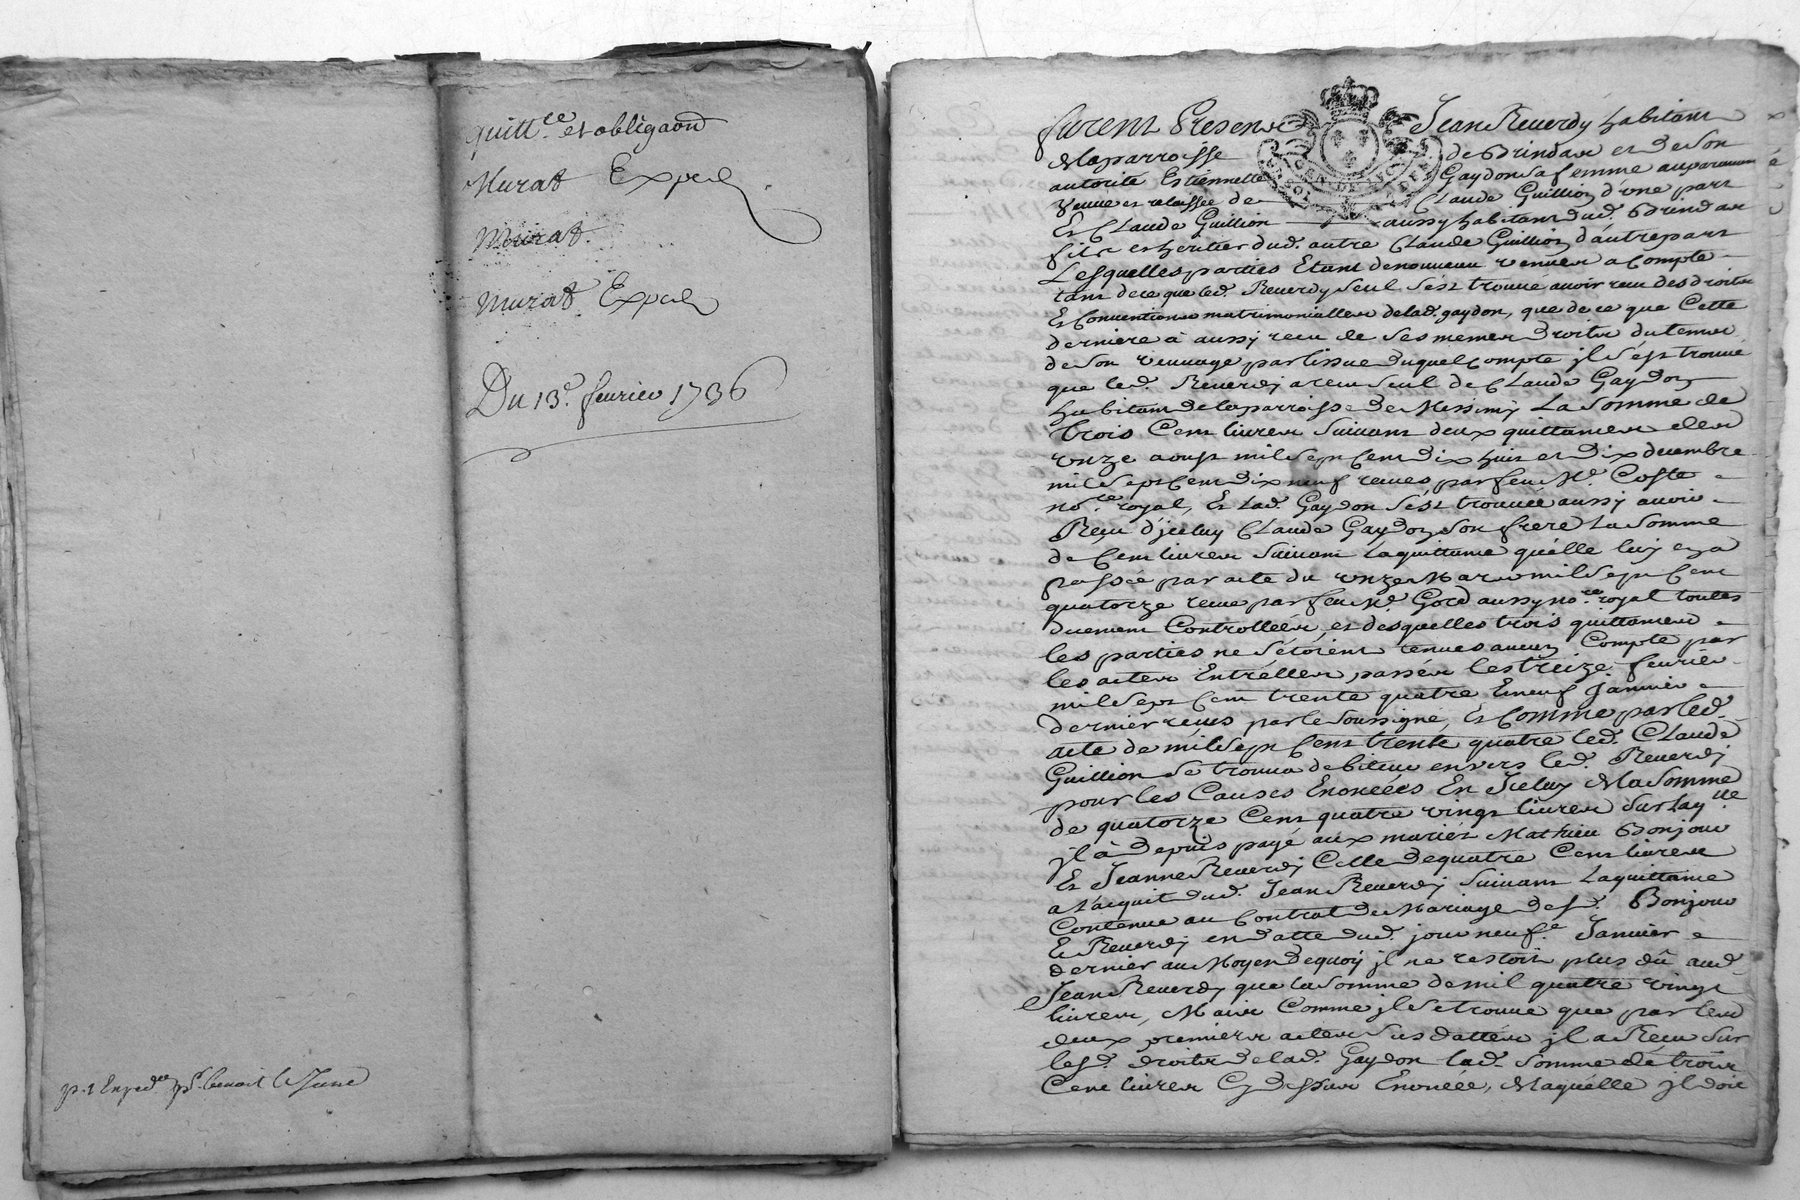 quitt.ce et obligaon
Murat Exped
Murat
Murat Exped
Du 13e. feurier 1736
p.r benoit le June
furent Presens Jean Reuerdy habitant
de laparroisse de Brindas et de Son
autorité Estiennette Gaydon sa femme auparauant
Veuue et relaissée de Claude Guillion d'vne part
Et Claude Guillion aussy habitant dud. Brindas
fils et heritier dud. autre Claude Guillion d'autre part
Lesquelles parties Etant denouueau venües a Compte
tant de ce que led. Reuerdy seul s'est trouué auoir receu des droits
Et Conuentions matrimonialles delad. gaydon, que de ce que Cette
derniere à aussy receu de Ses memes Droits du tems
de Son veuuage par lissue duquel compte jl s'est trouué
que led. Reuerdy a receu seul de Claude Gaydon
habitant de laparroisse de Messimy La Somme de
trois Cent liures Suiuant deux quittances des
vnze aoust mil sept Cent dix huit et dix decembre
mil sept Cent dix neuf receues par feu Me. Coste
no.re royal, Et lad. Gaydon s'est trouuée aussy auoir
Reçu d'jceluy Claude Gaydon son frere La Somme
de Cent liures Suiuant Laquittance quélle luy en a
passée par acte du vnze Mars mil sept Cent
quatorze receue par feu Me. Gord aussy no.re royal toutes
duement Controllées, et desquelles trois quittances
les parties ne s'étoient tenues aucun Compte par
les actes Entrélles passés les treize feurier
mil sept Cent trente quatre Et neuf janvier
dernier réçus par le Soussigné, Et Comme par led.
acte de mil sept Cent trente quatre led. Claude
Guillion Se trouua debiteur envers led. Reuerdj
pour les Causes Enoncées En Jceluy de la Somme
de quatorze Cent quatre vingt liures Sur laq.lle
jl à depuis payé aux mariés Mathieu Bonjour
Et Jeanne Reuerdj Celle de quatre Cent liures
a L'acquit dud. Jean Reuerdj Suiuant Laquittance
Contenue au Contrat de Mariage desd. Bonjour
Et Reuerdj en datte dud. jour neuf.e Januier
dernier au Moyen dequoy jl ne restoit plus dû aud.
Jean Reuerdy que la Somme de mil quatre vingt
liures, Mais Comme jl se trouue que par les
deux premiers actes Sus dattés jl a Reçu Sur
lesd. droits de lad. Gaydon lad. Somme de trois
Cent liures Cy dessus Enoncée, de laquelle jl doit